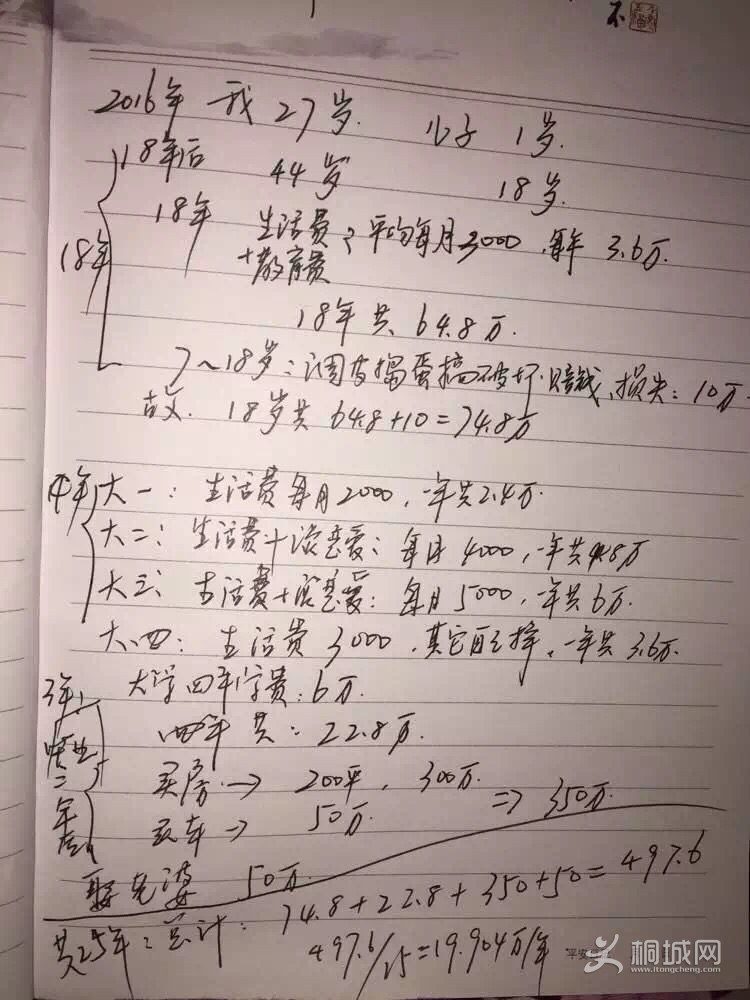 不
2016年 我 27岁. 儿子 1岁.
18年后 44岁 18岁.
18年
18年 生活费 平均每月3000, 每年 3.6万.
+教育费
18年共 64.8万.
7~18岁: 调皮捣蛋搞破坏.赔钱、损失: 10万.
故. 18岁共 64.8+10=74.8万
4年
大一: 生活费每月2000, 一年共2.4万.
大二: 生活费+谈恋爱: 每月 4000, 一年共4.8万
大三: 生活费+谈恋爱: 每月5000, 一年共6万.
大四: 生活费 3000, 其它自己挣, 一年共 3.6万.
大学四年学费: 6万.
四年 共: 22.8万.
3年
毕业
二
年后
买房→ 200平, 300万.
买车→ 50万. ⇒ 350万.
娶老婆 50万.
74.8+22.8+350+50=497.6
共25年: 总计:
497.6/25=19.904万/年
平安
桐城网
www.itongcheng.com